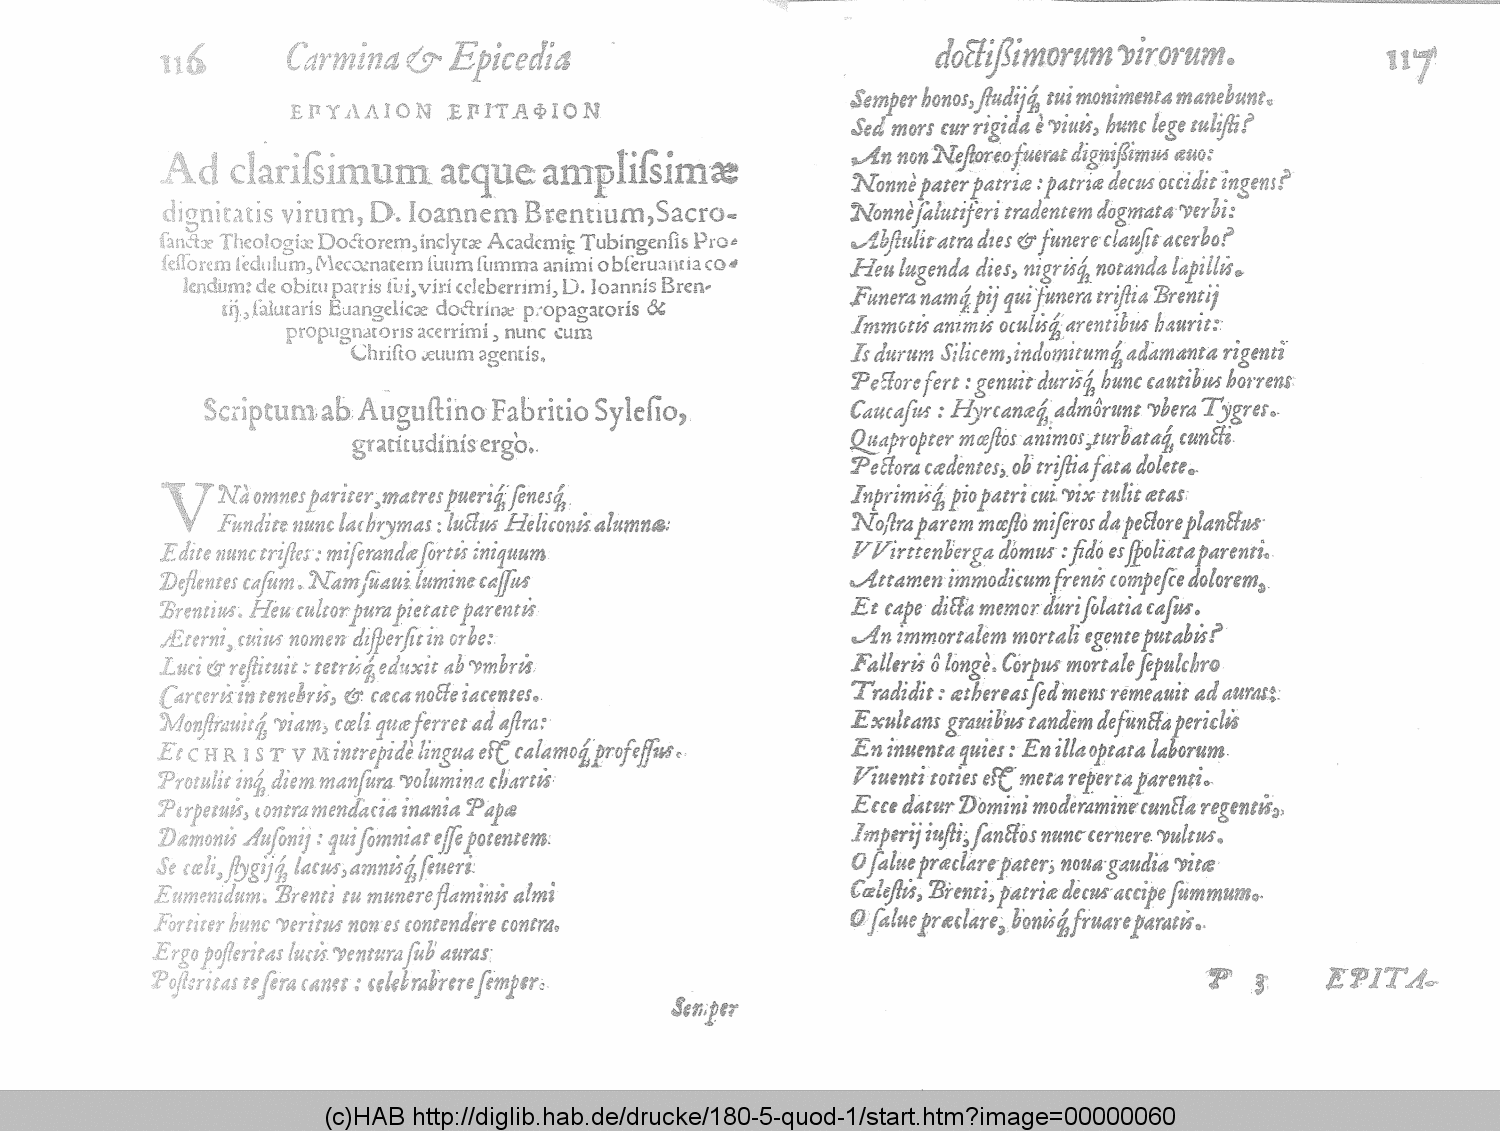 116 Carmina & Epicedia
ΕΠΥΛΛΙΟΝ ΕΠΙΤΑΦΙΟΝ
Ad clariſsimum atque ampliſsimæ
dignitatis virum, D. Ioannem Brentium, Sacro-
ſanctæ Theologiæ Doctorem, inclytæ Academię Tubingenſis Pro-
feſſorem ſedulum, Mecœnatem ſuum ſumma animi obſeruantia co-
lendum: de obitu patris ſui, viri celeberrimi, D. Ioannis Bren-
tij, ſalutaris Euangelicæ doctrinæ propagatoris &
propugnatoris acerrimi, nunc cum
Chriſto æuum agentis.
Scriptum ab Auguſtino Fabritio Sylesio,
gratitudinis ergò.
VNà omnes pariter, matres pueriq́; ſenesq́;
Fundite nunc lachrymas: luctus Heliconis alumnæ:
Edite nunc triſtes: miſerandæ ſortis iniquum
Deflentes caſum. Nam ſuaui lumine caſſus
Brentius. Heu cultor pura pietate parentis
Æterni, cuius nomen diſperſit in orbe:
Luci & reſtituit: tetrisq́; eduxit ab vmbris
Carceris in tenebris, & cæca nocte iacentes.
Monſtrauitq́; viam, cœli quæ ferret ad aſtra:
Et CHRISTVM intrepidè lingua eſt calamoq́; profeſſus.
Protulit inq́; diem manſura volumina chartis
Perpetuis, contra mendacia inania Papæ
Dæmonis Auſonij: qui ſomniat eſſe potentem
Se cœli, ſtygijq́; lacus, amnisq́; ſeueri
Eumenidum. Brenti tu munere flaminis almi
Fortiter hunc veritus non es contendere contra.
Ergo poſteritas lucis ventura ſub auras
Poſteritas te ſera canet: celebrabrere ſemper.
Semper
doctißimorum virorum. 117
Semper honos, ſtudijq́; tui monimenta manebunt.
Sed mors cur rigida è viuis, hunc lege tuliſti?
An non Neſtoreo fuerat digniſſimus æuo:
Nonnè pater patriæ: patriæ decus occidit ingens?
Nonnè ſalutiferi tradentem dogmata verbi:
Abſtulit atra dies & funere clauſit acerbo?
Heu lugenda dies, nigrisq́; notanda lapillis.
Funera namq́; pij qui funera triſtia Brentij
Immotis animis oculisq́; arentibus haurit:
Is durum Silicem, indomitumq́; adamanta rigenti
Pectore fert: genuit durisq́; hunc cautibus horrens
Caucaſus: Hyrcanæq́; admôrunt vbera Tygres.
Quapropter mœſtos animos, turbataq́; cuncti
Pectora cædentes, ob triſtia fata dolete.
Inprimisq́; pio patri cui vix tulit ætas
Noſtra parem mœſto miſeros da pectore planctus
VVirttenberga domus: fido es ſpoliata parenti.
Attamen immodicum frenis compeſce dolorem,
Et cape dicta memor duri ſolatia caſus.
An immortalem mortali egente putabis?
Falleris ô longè. Corpus mortale ſepulchro
Tradidit: æthereas ſed mens remeauit ad auras:
Exultans grauibus tandem defuncta periclis
En inuenta quies: En illa optata laborum
Viuenti toties eſt meta reperta parenti.
Ecce datur Domini moderamine cuncta regentis,
Imperij iuſti, ſanctos nunc cernere vultus.
O ſalue præclare pater, noua gaudia vitæ
Cæleſtis, Brenti, patriæ decus accipe ſummum.
O ſalue præclare, bonisq́; fruare paratis.
P 3 EPITA-
(c)HAB http://diglib.hab.de/drucke/180-5-quod-1/start.htm?image=00000060